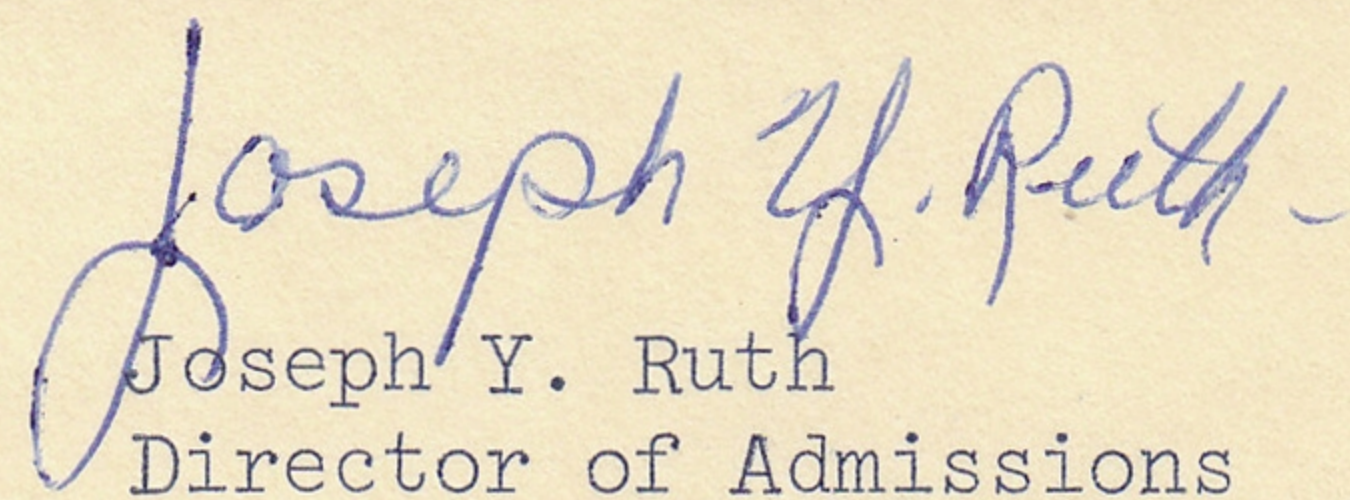 Joseph Y. Ruth
Joseph Y. Ruth
Director of Admissions